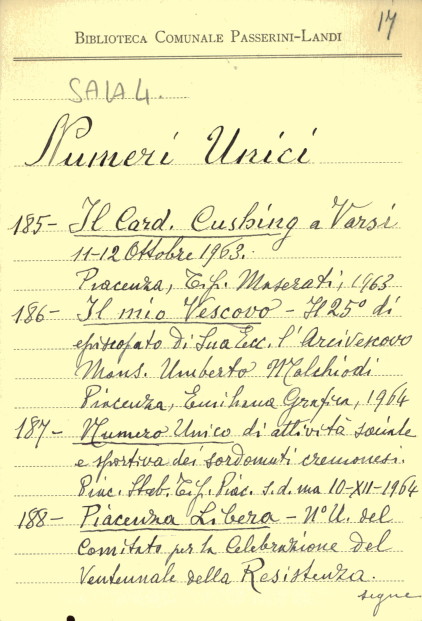 17
BIBLIOTECA COMUNALE PASSERINI-LANDI
SALA 4.
Numeri Unici
185- Il Card. Cushing a Varsi
11-12 Ottobre 1963.
Piacenza, Tip. Maserati, 1963
186- Il mio Vescovo - Il 25º di
episcopato di Sua Ecc. l'Arcivescovo
Mons. Umberto Malchiodi
Piacenza, Emiliana Grafica, 1964
187- Numero Unico di attività sociale
e sportiva dei sordomuti cremonesi.
Piac. Stab. Tip. Piac. s.d. ma 10-XII-1964
188- Piacenza Libera - Nº U. del
Comitato per la Celebrazione del
Ventennale della Resistenza.
segue